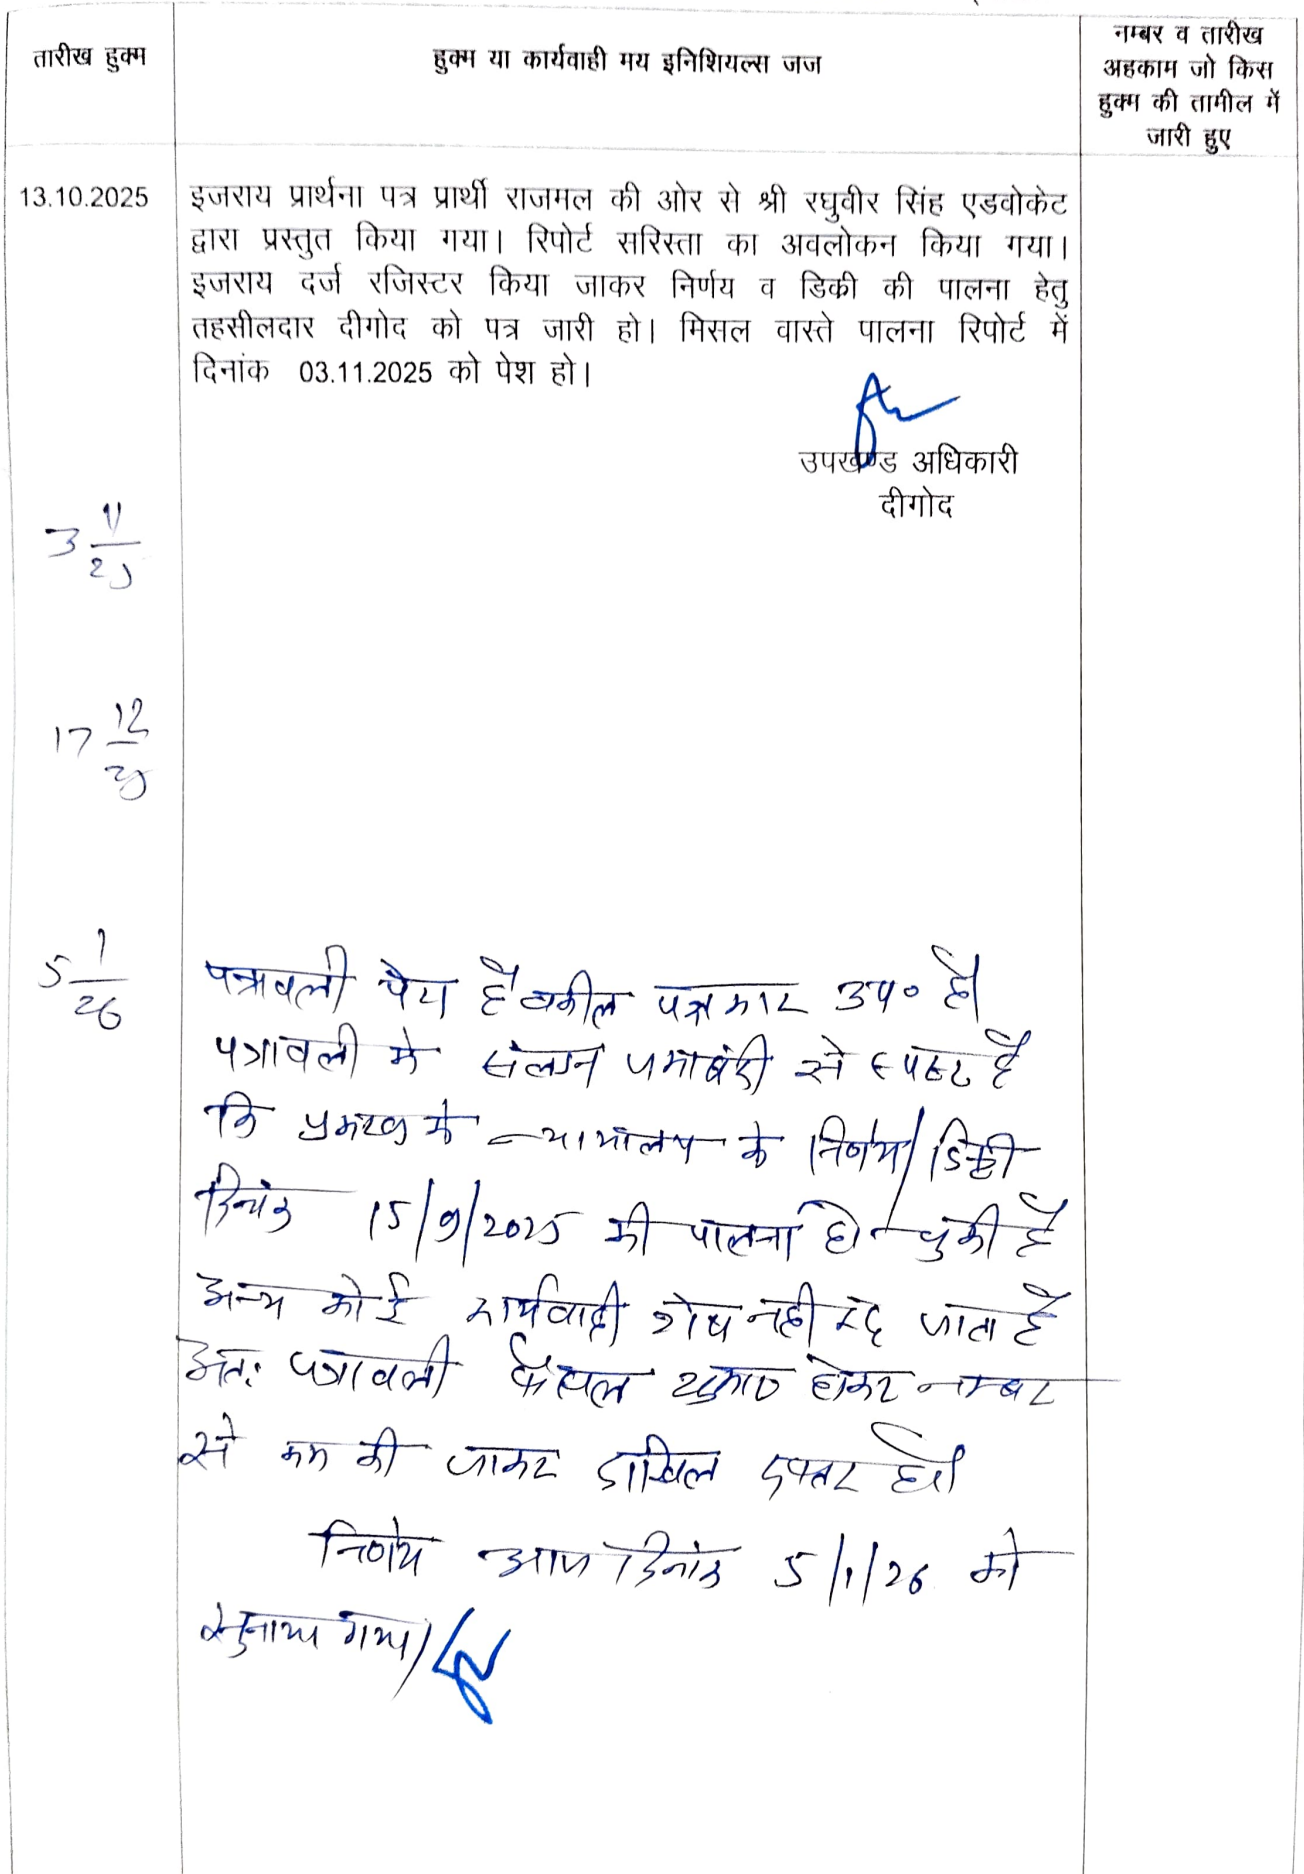 तारीख हुक्म
हुक्म या कार्यवाही मय इनिशियल्स जज
नम्बर व तारीख
अहकाम जो किस
हुक्म की तामील में
जारी हुए
13.10.2025
इजराय प्रार्थना पत्र प्रार्थी राजमल की ओर से श्री रघुवीर सिंह एडवोकेट
द्वारा प्रस्तुत किया गया। रिपोर्ट सरिस्ता का अवलोकन किया गया।
इजराय दर्ज रजिस्टर किया जाकर निर्णय व डिकी की पालना हेतु
तहसीलदार दीगोद को पत्र जारी हो। मिसल वास्ते पालना रिपोर्ट में
दिनांक 03.11.2025 को पेश हो।
उपखण्ड अधिकारी
दीगोद
3 11/25
17 12/25
5 1/26
पत्रावली पेश है वकील पक्षकार उप० है।
पत्रावली मे संलग्न जमाबंदी से स्पष्ट है
कि प्रकरण मे न्यायालय के निर्णय/डिक्री
दिनांक 15/9/2025 की पालना हो चुकी है
अन्य कोई कार्यवाही शेष नही रह जाता है
अतः पत्रावली फैसल शुमार होकर नम्बर
से कम की जाकर दाखिल दफ्तर हो।
निर्णय आज दिनांक 5/1/26 को
सुनाया गया।